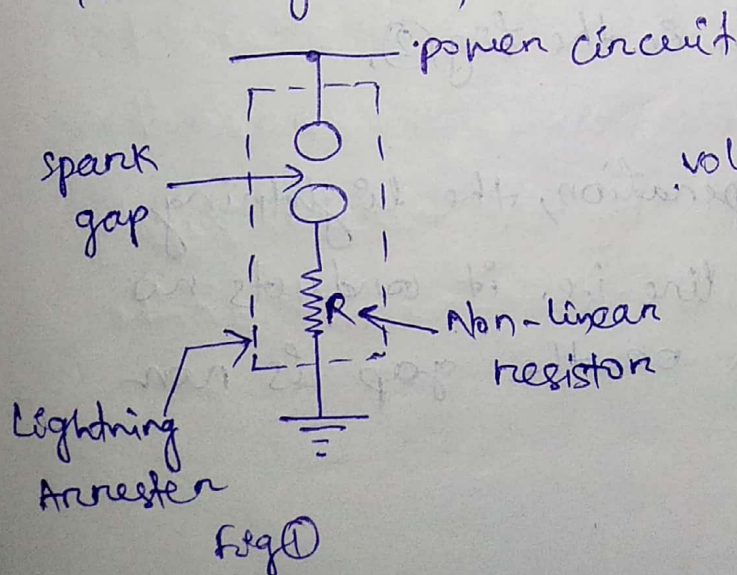 power circuit
spark
gap
vol
R
Non-linear
resistor
Lightning
Arrester
Fig ①